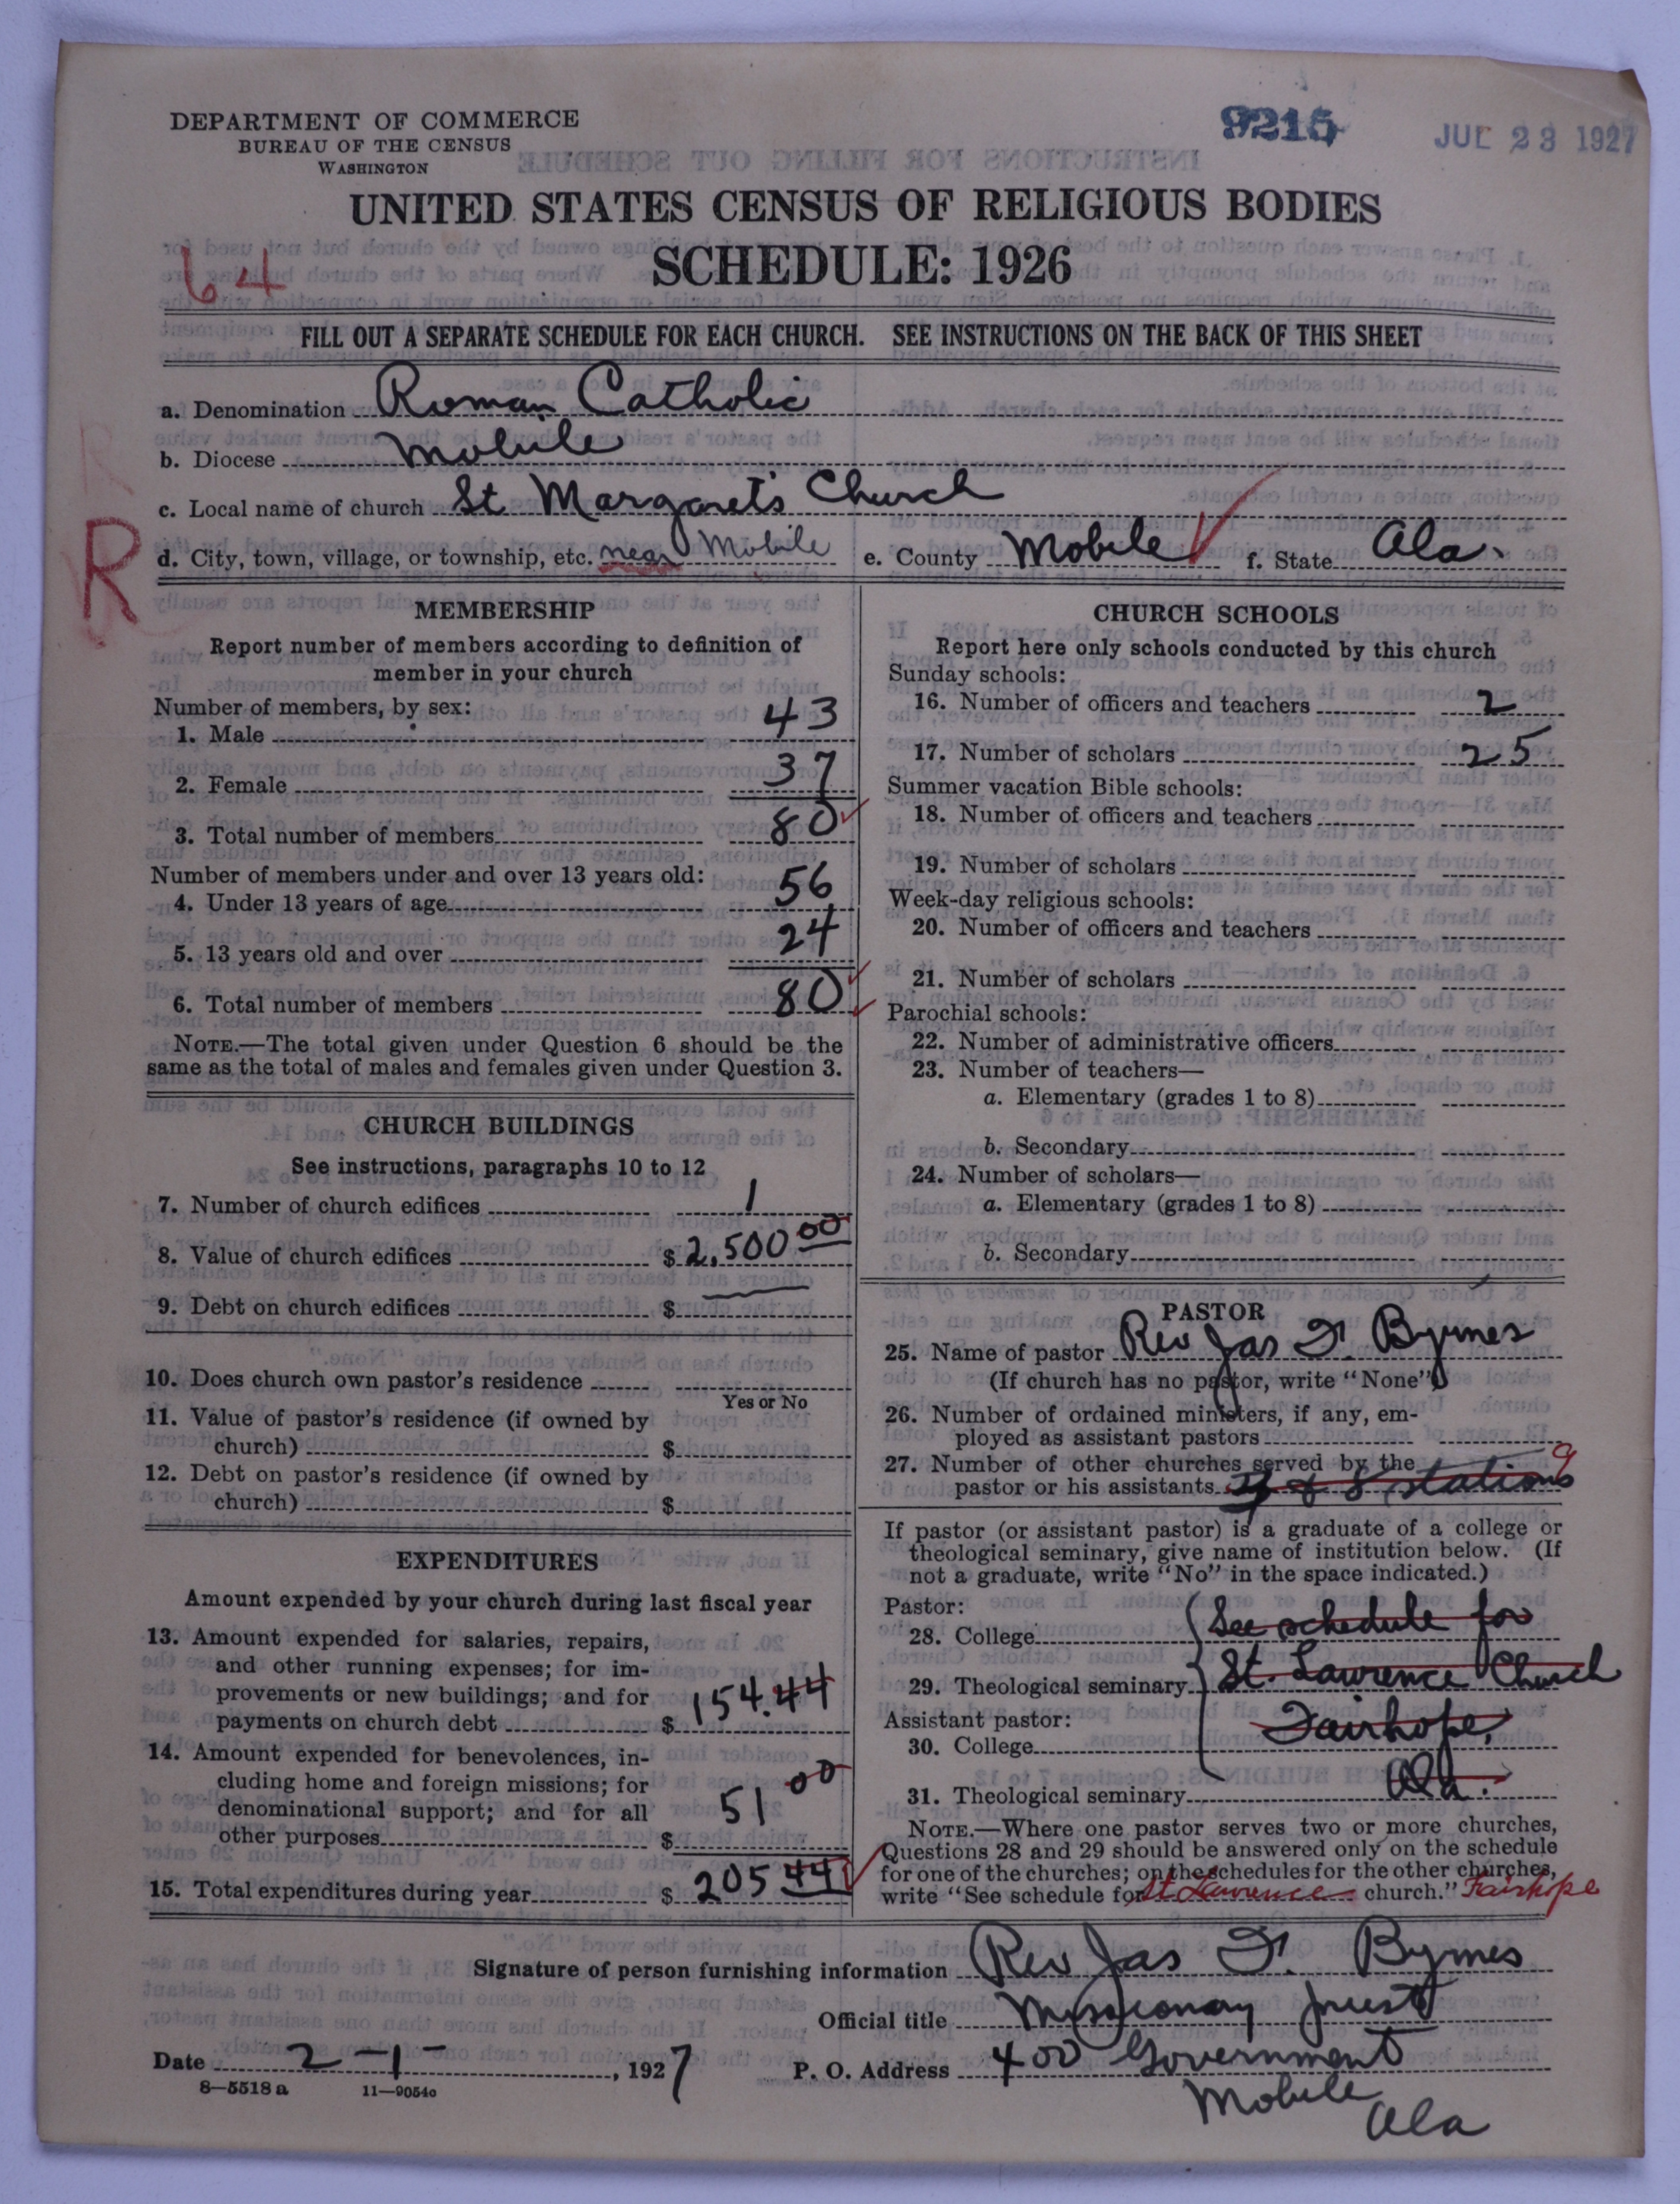 DEPARTMENT OF COMMERCE
BUREAU OF THE CENSUS
WASHINGTON
9215
JUL 23 1927
UNITED STATES CENSUS OF RELIGIOUS BODIES
SCHEDULE: 1926
64
FILL OUT A SEPARATE SCHEDULE FOR EACH CHURCH. SEE INSTRUCTIONS ON THE BACK OF THIS SHEET
a. Denomination Roman Catholic
b. Diocese Mobile
c. Local name of church St Margaret's Church
R
d. City, town, village, or township, etc. near Mobile e. County Mobile f. State Ala.
MEMBERSHIP
Report number of members according to definition of
member in your church
Number of members, by sex:
1. Male 43
2. Female 37
3. Total number of members 80
Number of members under and over 13 years old:
4. Under 13 years of age 56
5. 13 years old and over 24
6. Total number of members 80
NOTE.—The total given under Question 6 should be the
same as the total of males and females given under Question 3.
CHURCH BUILDINGS
See instructions, paragraphs 10 to 12
7. Number of church edifices 1
8. Value of church edifices $ 2,500 00
9. Debt on church edifices $
10. Does church own pastor's residence
Yes or No
11. Value of pastor's residence (if owned by
church) $
12. Debt on pastor's residence (if owned by
church) $
EXPENDITURES
Amount expended by your church during last fiscal year
13. Amount expended for salaries, repairs,
and other running expenses; for im-
provements or new buildings; and for
payments on church debt $ 154.44
14. Amount expended for benevolences, in-
cluding home and foreign missions; for
denominational support; and for all
other purposes $ 51 00
15. Total expenditures during year $ 205 44
CHURCH SCHOOLS
Report here only schools conducted by this church
Sunday schools:
16. Number of officers and teachers 2
17. Number of scholars 25
Summer vacation Bible schools:
18. Number of officers and teachers
19. Number of scholars
Week-day religious schools:
20. Number of officers and teachers
21. Number of scholars
Parochial schools:
22. Number of administrative officers
23. Number of teachers—
a. Elementary (grades 1 to 8)
b. Secondary
24. Number of scholars—
a. Elementary (grades 1 to 8)
b. Secondary
PASTOR
25. Name of pastor Rev Jas F. Byrnes
(If church has no pastor, write "None")
26. Number of ordained ministers, if any, em-
ployed as assistant pastors
27. Number of other churches served by the
pastor or his assistants & 8 stations
If pastor (or assistant pastor) is a graduate of a college or
theological seminary, give name of institution below. (If
not a graduate, write "No" in the space indicated.)
Pastor:
28. College See schedule for
29. Theological seminary St. Lawrence Church
Assistant pastor: Fairhope,
30. College
31. Theological seminary Ala.
NOTE.—Where one pastor serves two or more churches,
Questions 28 and 29 should be answered only on the schedule
for one of the churches; on the schedules for the other churches,
write "See schedule for St Lawrence church." Fairhope
Signature of person furnishing information Rev Jas F. Byrnes
Official title Missionary priest
Date 2-1-, 1927 P. O. Address 400 Government
8—5518 a 11—9054c
Mobile
Ala